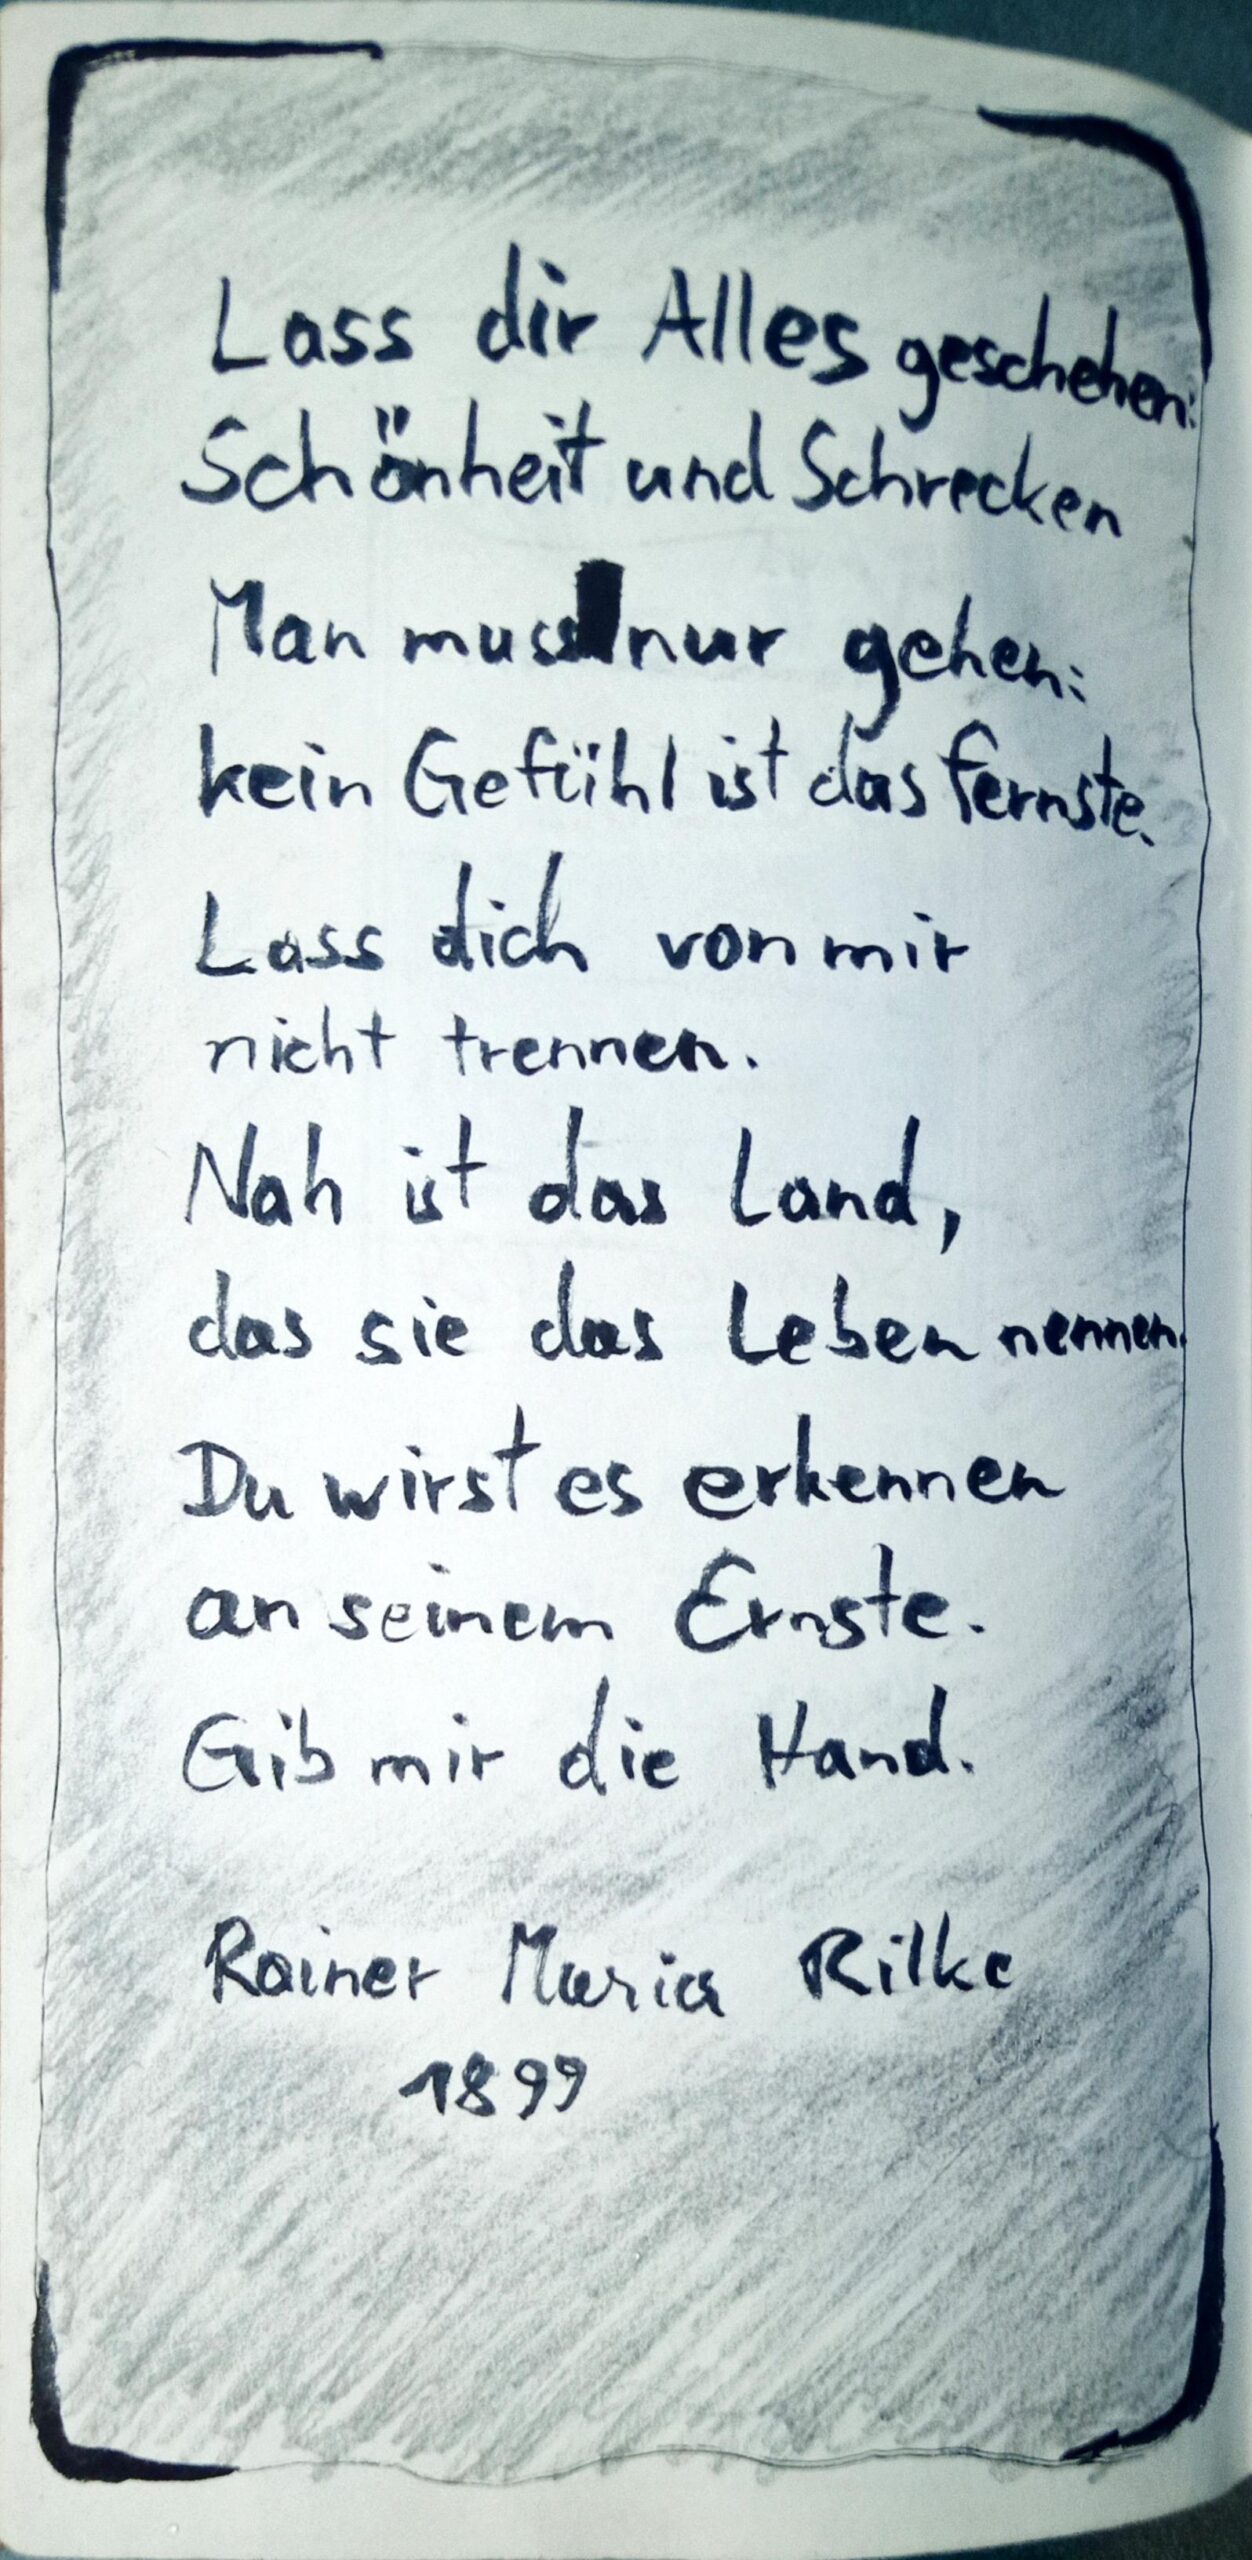 Lass dir Alles geschehen:
Schönheit und Schrecken
Man muss nur gehen:
kein Gefühl ist das fernste.
Lass dich von mir
nicht trennen.
Nah ist das Land,
das sie das Leben nennen.
Du wirst es erkennen
an seinem Ernste.
Gib mir die Hand.
Rainer Maria Rilke
1899